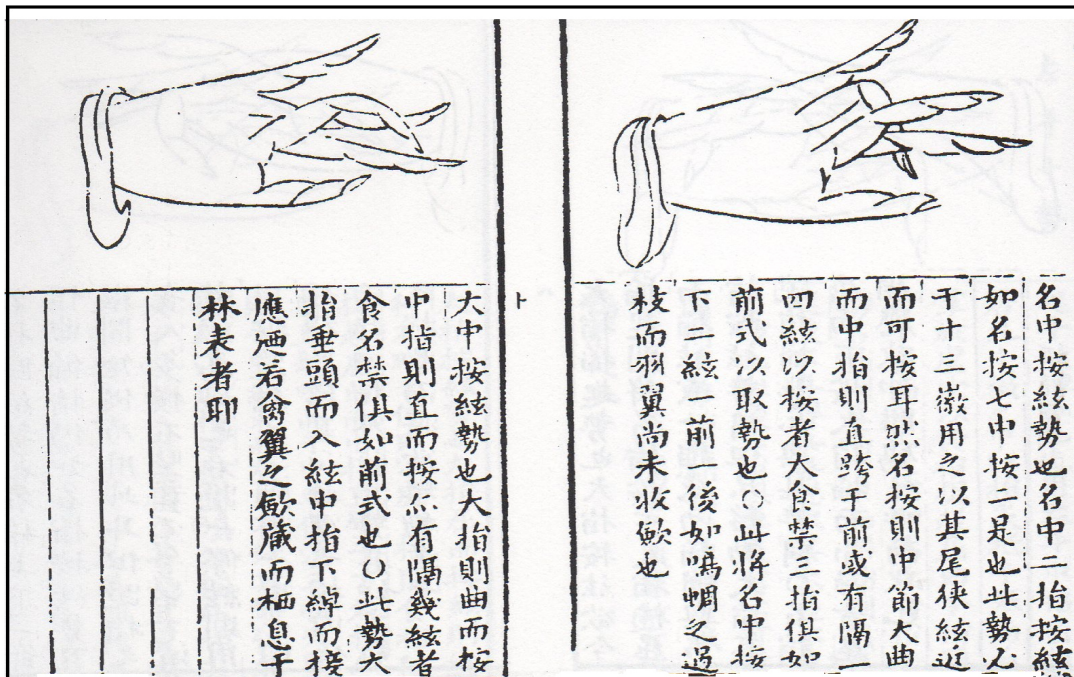 名中按絃勢也名中二指按絃
如名按七中按二是也此勢
于十三徽用之以其尾狹絃近
而可按耳然名按則中節大曲
而中指則直跨于前或有隔一
四絃以按者大食禁三指俱如
前式以取勢也○此將名中按
下二絃一前一後如鳴蜩之過
枝而羽翼尚未收歛也
卜
大中按絃勢也大指則曲而按
中指則直而按亦有隔幾絃者
食名禁俱如前式也○此勢大
指垂頭而入絃中指下綽而接
應洒若禽翼之歛藏而栖息于
林表者耶